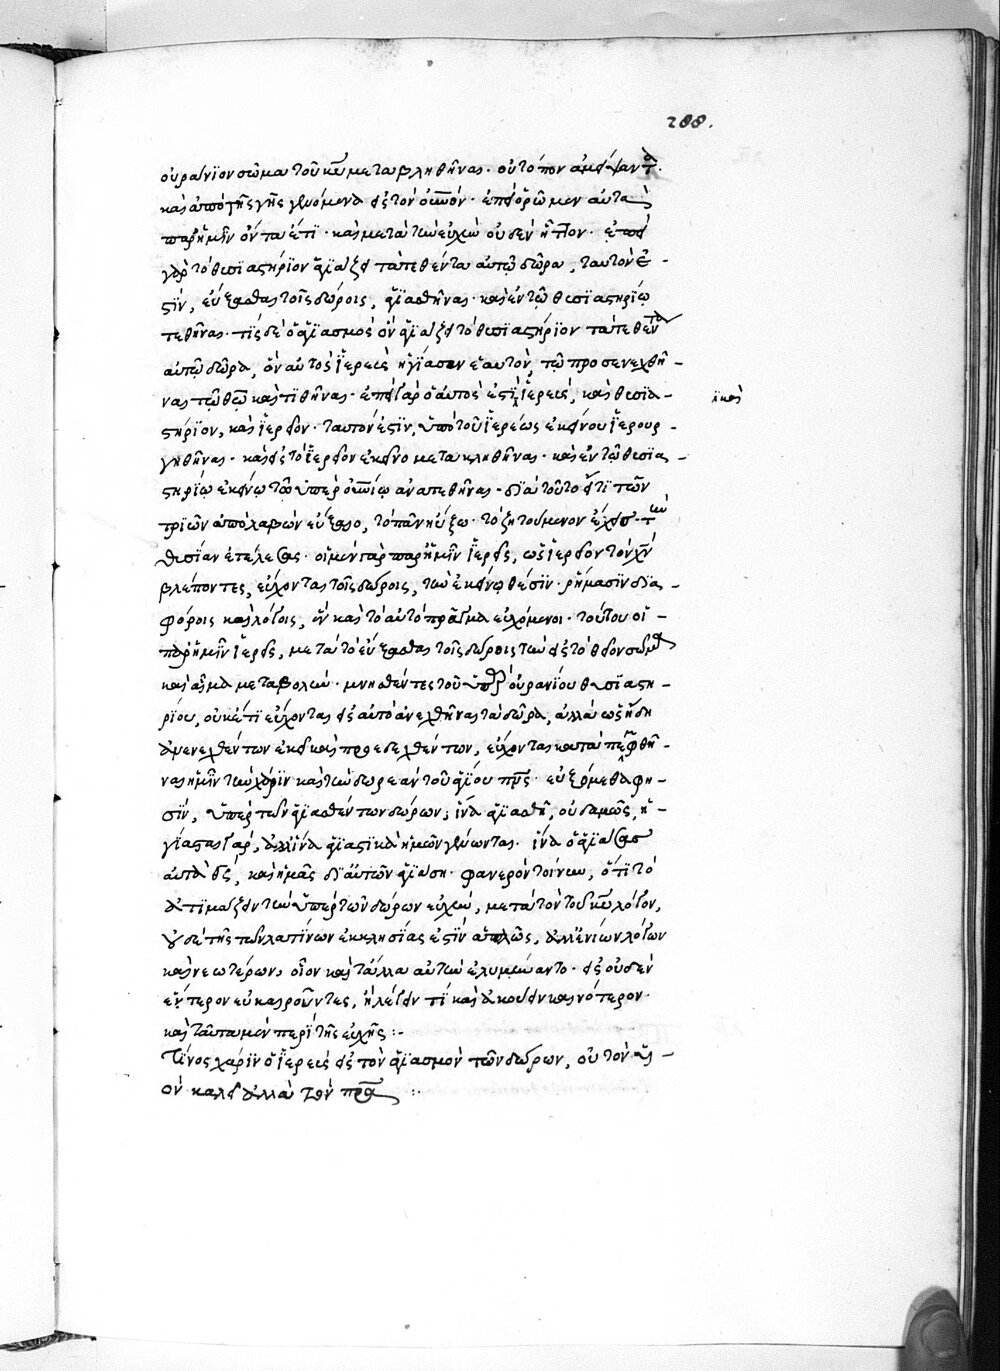 288.
οὐράνϊον σῶμα τοῦ κυ μεταβληθῆναι. οὐ τόπον ἀμείψαντα.
καὶ ἀπὸ τῆς γῆς γενόμενα εἰς τὸν οὐνόν. ἐπεὶ ὁρῶμεν αὐτὰ
παρ' ἡμῖν ὄντα ἔτι. καὶ μετὰ τὴν εὐχὴν οὐδὲν ἧττον. ἐπεὶ
γὰρ τὸ θυσϊαστήρϊον ἁγϊάζει τὰ τεθέντα αὐτῷ δῶρα, ταυτόν ἐ-
στϊν, εὔξασθαι τοῖς δώροις, ἁγϊασθῆναι. καὶ ἐν τῷ θυσϊαστηρίῳ
τεθῆναι. τίς δὲ ὁ ἁγϊασμὸς ὃν ἁγϊάζει τὸ θυσϊαστήρϊον τὰ τεθέντα
αὐτῷ δῶρα, ὃν αὐτὸς ὁ ἱερεὺς ἡγίασεν ἑαυτὸν, τῷ προσενεχθῆ-
ναι τῷ θεῷ καὶ τυθῆναι. ἐπεὶ γὰρ ὁ αὐτός ἐστϊ ἱερεὺς, καὶ θυσϊα-
ϊ καὶ
στήρϊον, καὶ ἱερεῖον. ταυτόν ἐστϊν, ὑπὸ τοῦ ἱερέως ἐκείνου ἱερουρ-
γηθῆναι. καὶ εἰς τὸ ἱερεῖον ἐκεῖνο μετακληθῆναι. καὶ ἐν τῷ θυσϊα-
στηρίῳ ἐκείνῳ τῷ ὑπερουνίῳ ἀνατεθῆναι. δϊὰ τοῦτο ὅτϊ τῶν
τρϊῶν ἀπολαβὼν εὔξαιο, τὸ πᾶν ηὔξω. τὸ ζητούμενον ἔχεις. τὴν
θυσίαν ἐτέλεσας. οἱ μὲν γὰρ παρ' ἡμῖν ἱερεῖς, ὡς ἱερεῖον τὸν χν
βλέποντες, εὔχονται τοῖς δώροις, τὴν ἐκείνῳ θέσϊν. ῥήμασϊν δϊα-
φόροις καὶ λόγοις, ἓν καὶ τὸ αὐτὸ πρᾶγμα εὐχόμενοι. τούτου οἱ
παρ' ἡμῖν ἱερεῖς, μετὰ τὸ εὔξασθαι τοῖς δώροις τὴν εἰς τὸ θεῖον σῶμα
καὶ αἷμα μεταβολὴν. μνησθέντες τοῦ ὑπερουρανίου θυσϊαστη-
ρίου, οὐκέτϊ εὔχονται εἰς αὐτὸ ἀνελθῆναι τὰ δῶρα, ἀλλὰ ὡς ἤδη
ἀνενεχθέντων ἐκεῖ καὶ προσδεχθέντων, εὔχονται καταπεμφθῆ-
ναι ἡμῖν τὴν χάρϊν καὶ τὴν δωρεὰν τοῦ ἁγίου πνς. εὐξώμεθά φη-
σϊν, ὑπὲρ τῶν ἁγϊασθέντων δώρων; ἵνα ἁγϊασθῇ, οὐδαμῶς, ἡ-
γίασται γάρ, ἀλλ' ἵνα ἁγϊαστϊκὰ ἡμῶν γένωνται. ἵνα ὁ ἁγϊάσας
αὐτὰ θς, καὶ ἡμᾶς δϊ' αὐτῶν ἁγϊάσῃ. φανερὸν τοίνυν, ὅτϊ τὸ
ἀτϊμάζειν τὴν ὑπὲρ τῶν δώρων εὐχὴν, μετὰ τὸν τοῦ κυ λόγον,
οὐδὲ τῆς τῶν λατίνων ἐκκλησίας ἐστὶν ἁπλῶς, ἀλλ' ἐνίων λόγων
καὶ νεωτέρων. οἷον καὶ τἄλλα αὐτὴν ἐλυμήναντο. εἰς οὐδὲν
ἕτερον εὐκαιροῦντες, ἢ λέγειν τὶ καὶ ἀκούειν καινότερον.
καὶ ταῦτα μὲν περὶ τῆς εὐχῆς :-
Τίνος χάρϊν ὁ ἱερεὺς εἰς τὸν ἁγϊασμὸν τῶν δώρων, οὐ τὸν υἱ-
ὸν καλεῖ ἀλλὰ τὸν πρα :-